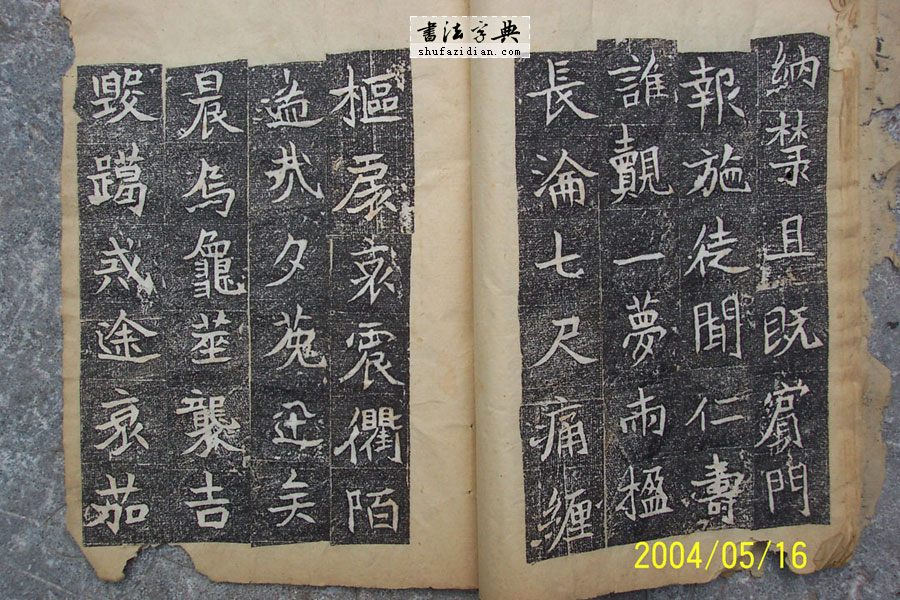 書法字典
shufazidian.com
納禁且既賓門
報施徒聞仁壽
誰覿一夢兩楹
長淪七尺痛纏
樞扆哀震衢陌
哉夕菟迅矣
晨烏龜筮襲吉
戒途哀茄
2004/05/16